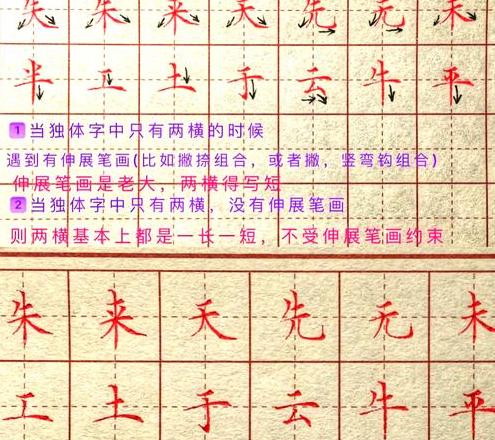 失 朱 来 天 先 无 未
半 工 土 于 云 牛 平
1 当独体字中只有两横的时候
遇到有伸展笔画(比如撇捺组合，或者撇，竖弯钩组合)
伸展笔画是老大，两横得写短
2 当独体字中只有两横，没有伸展笔画
则两横基本上都是一长一短，不受伸展笔画约束
朱 来 天 先 无 未
工 土 于 云 牛 平